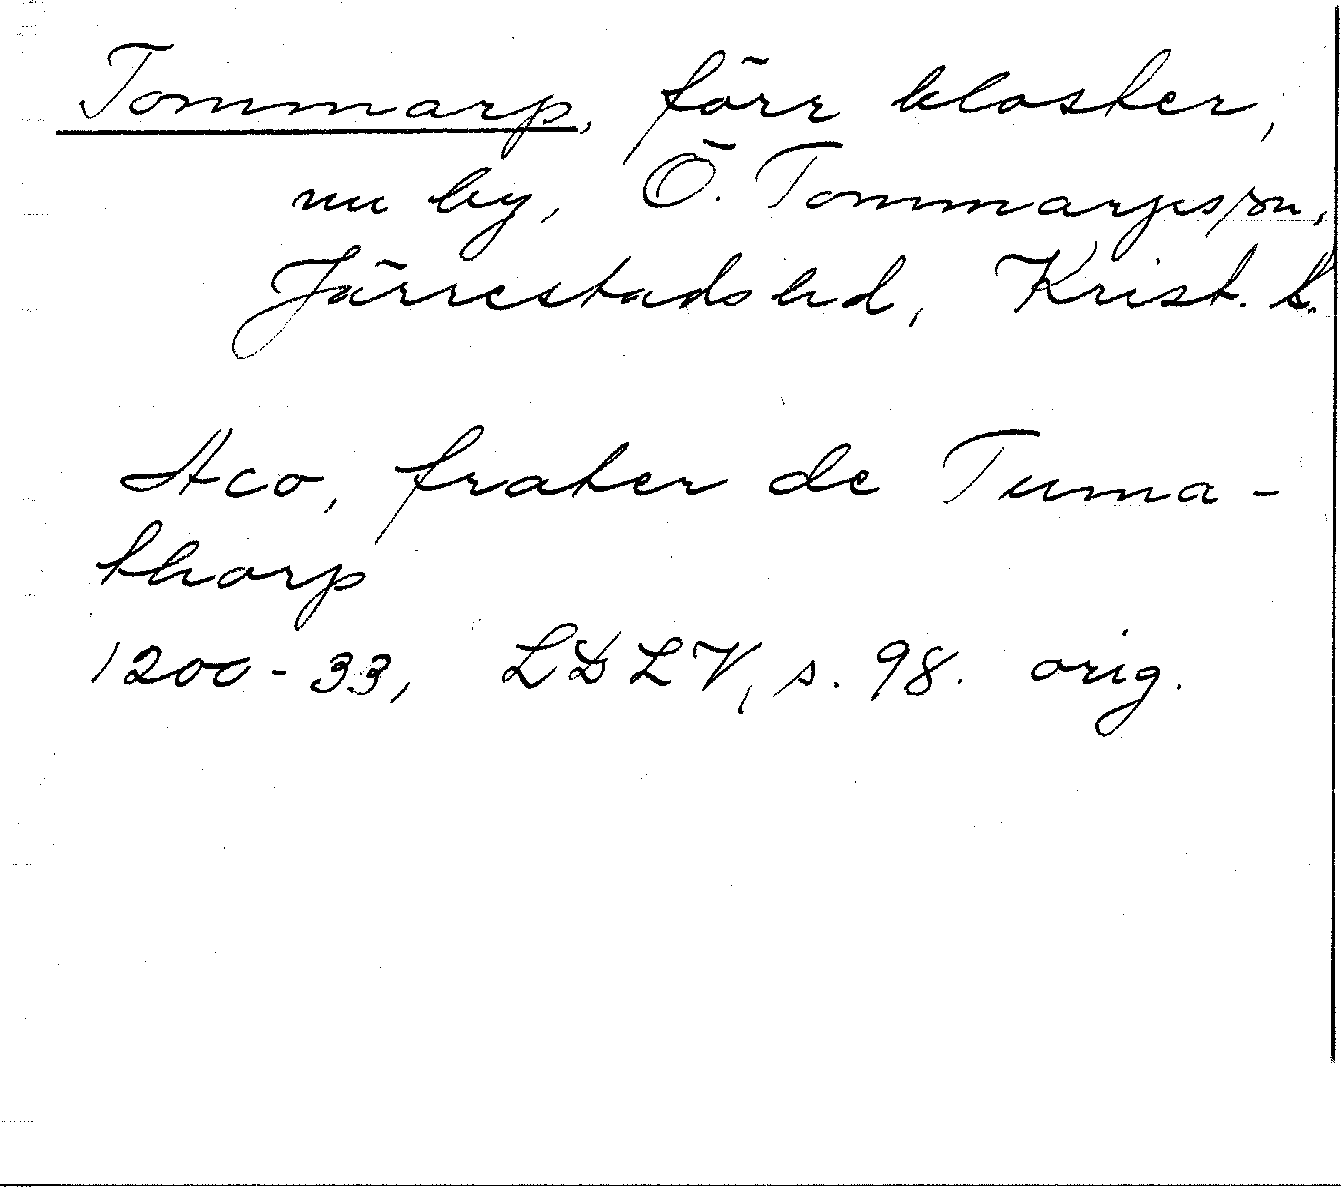 Tommarp, förr kloster,
nu by, Ö. Tommarps sn,
Järrestads hd, Krist. l.
Aco, frater de Tuma-
thorp
1200-33, LDLV, s. 98. orig.